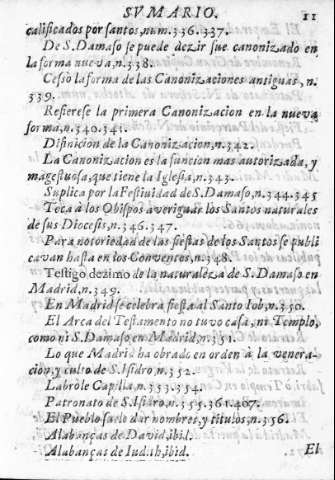 SVMARIO. 11
calificados por santos, num. 336. 337.
De S. Damaso se puede dezir fue canonizado en
la forma nueva, n. 338.
Cesso la forma de las Canonizaciones antiguas, n.
339.
Refierese la primera Canonizacion en la nueva
forma, n. 340. 341.
Difinicion de la Canonizacion, n. 342.
La Canonizacion es la funcion mas autorizada, y
magestuosa, que tiene la Iglesia, n. 343.
Suplica por la Festiuidad de S. Damaso, n. 344. 345
Toca à los Obispos averiguar los Santos naturales
de sus Diocesis, n. 346. 347.
Para notoriedad de las fiestas de los Santos se publi
cavan hasta en los Conventos, n. 348.
Testigo dezimo de la naturaleza de S. Damaso en
Madrid, n. 349.
En Madrid se celebra fiesta al Santo Iob, n. 350.
El Arca del Testamento no tuvo casa, ni Templo,
como ni S. Damaso en Madrid, n. 351.
Lo que Madrid ha obrado en orden à la venera-
cion, y culto de S. Isidro, n. 352.
Labróle Capilla, n. 353. 354.
Patronato de S. Isidro, n. 355. 361. 407.
El Pueblo suele dar nombres, y titulos, n. 356.
Alabanças de David, ibil.
Alabanças de Iudith, ibid.
El